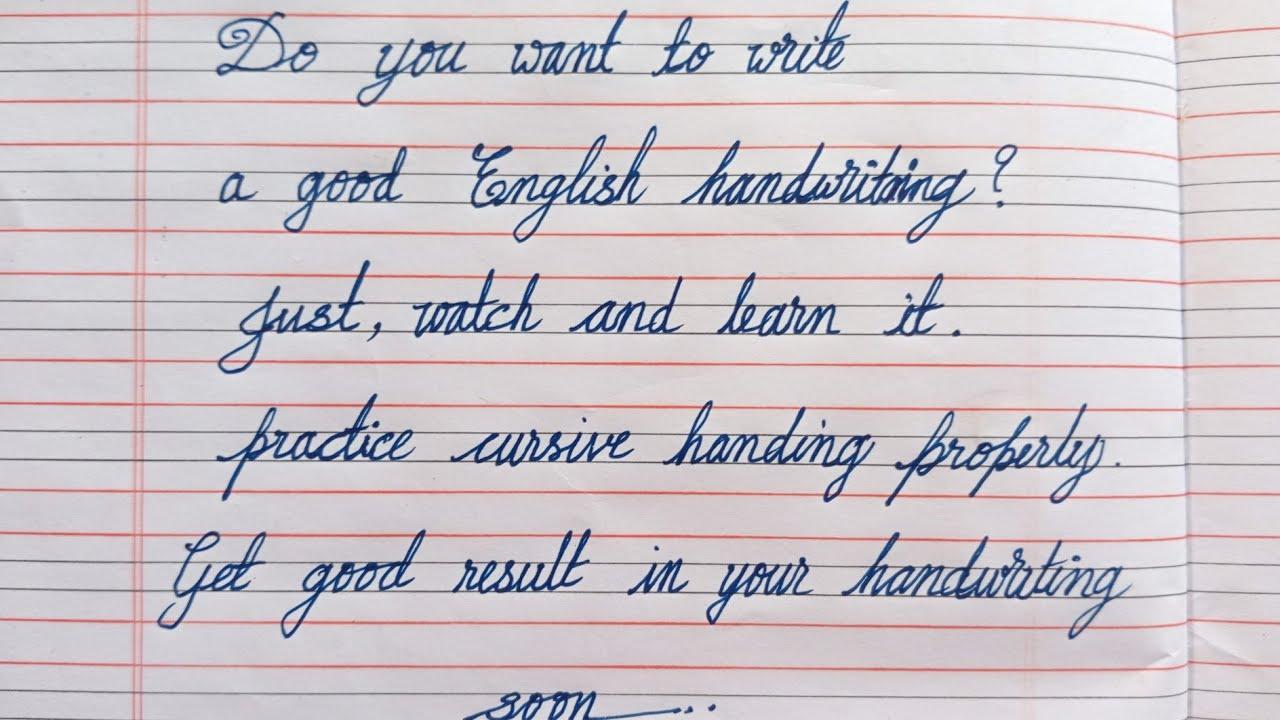 Do you want to write
a good English handwriting?
Just, watch and learn it.
practice cursive handing properly.
Get good result in your handwriting
soon...